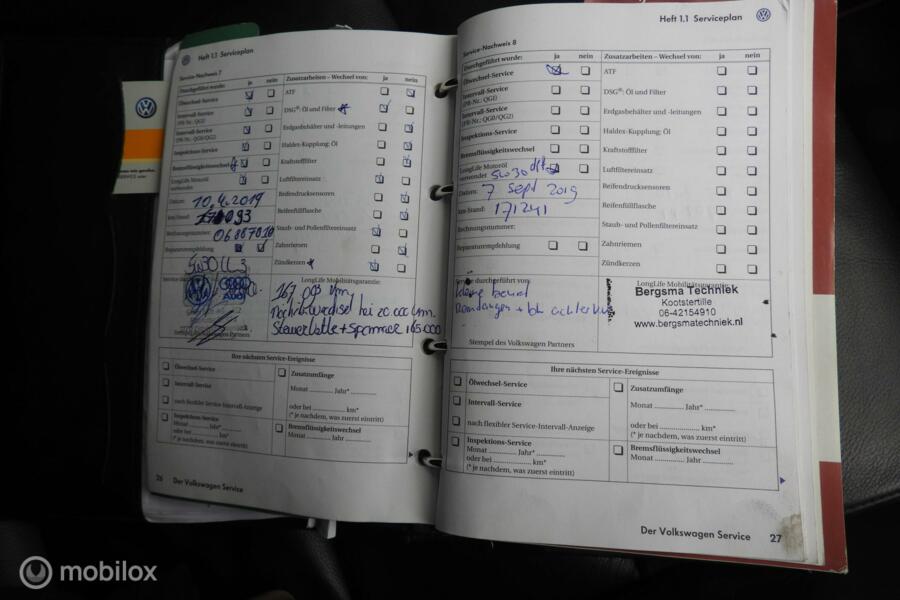 Heft 1.1 Serviceplan
Service-Nachweis 7
Durchgeführt wurde: ja nein
Ölwechsel-Service
Intervall-Service
(PR-Nr.: QG1)
Intervall-Service
(PR-Nr.: QG0/QG2)
Inspektions-Service
Bremsflüssigkeitswechsel
LongLife Motoröl
verwendet
Datum: 10.4.2019
km-Stand:
Rechnungsnummer:
Reparaturempfehlung
Zusatzarbeiten – Wechsel von: ja nein
ATF
DSG®: Öl und Filter
Erdgasbehälter und -leitungen
Haldex-Kupplung: Öl
Kraftstofffilter
Luftfiltereinsatz
Reifendrucksensoren
Reifenfüllflasche
Staub- und Pollenfiltereinsatz
Zahnriemen
Zündkerzen
LongLife Mobilitätsgarantie:
Ihre nächsten Service-Ereignisse
Ölwechsel-Service
Intervall-Service
nach flexibler Service-Intervall-Anzeige
Inspektions-Service
Monat Jahr*
oder bei km*
(* je nachdem, was zuerst eintritt)
Zusatzumfänge
Monat Jahr*
oder bei km*
(* je nachdem, was zuerst eintritt)
Bremsflüssigkeitswechsel
Monat Jahr
26 Der Volkswagen Service
Heft 1.1 Serviceplan
Service-Nachweis 8
Durchgeführt wurde: ja nein
Ölwechsel-Service
Intervall-Service
(PR-Nr.: QG1)
Intervall-Service
(PR-Nr.: QG0/QG2)
Inspektions-Service
Bremsflüssigkeitswechsel
LongLife Motoröl
verwendet 5W30
Datum: 7 Sept 2019
km-Stand: 171241
Rechnungsnummer:
Reparaturempfehlung
Zusatzarbeiten – Wechsel von: ja nein
ATF
DSG®: Öl und Filter
Erdgasbehälter und -leitungen
Haldex-Kupplung: Öl
Kraftstofffilter
Luftfiltereinsatz
Reifendrucksensoren
Reifenfüllflasche
Staub- und Pollenfiltereinsatz
Zahnriemen
Zündkerzen
Service durchgeführt von:
Stempel des Volkswagen Partners
LongLife Mobilitätsgarantie:
Bergsma Techniek
Kootstertille
06-42154910
www.bergsmatechniek.nl
Ihre nächsten Service-Ereignisse
Ölwechsel-Service
Intervall-Service
nach flexibler Service-Intervall-Anzeige
Inspektions-Service
Monat Jahr*
oder bei km*
(* je nachdem, was zuerst eintritt)
Zusatzumfänge
Monat Jahr*
oder bei km*
(* je nachdem, was zuerst eintritt)
Bremsflüssigkeitswechsel
Monat Jahr
Der Volkswagen Service 27
mobilox